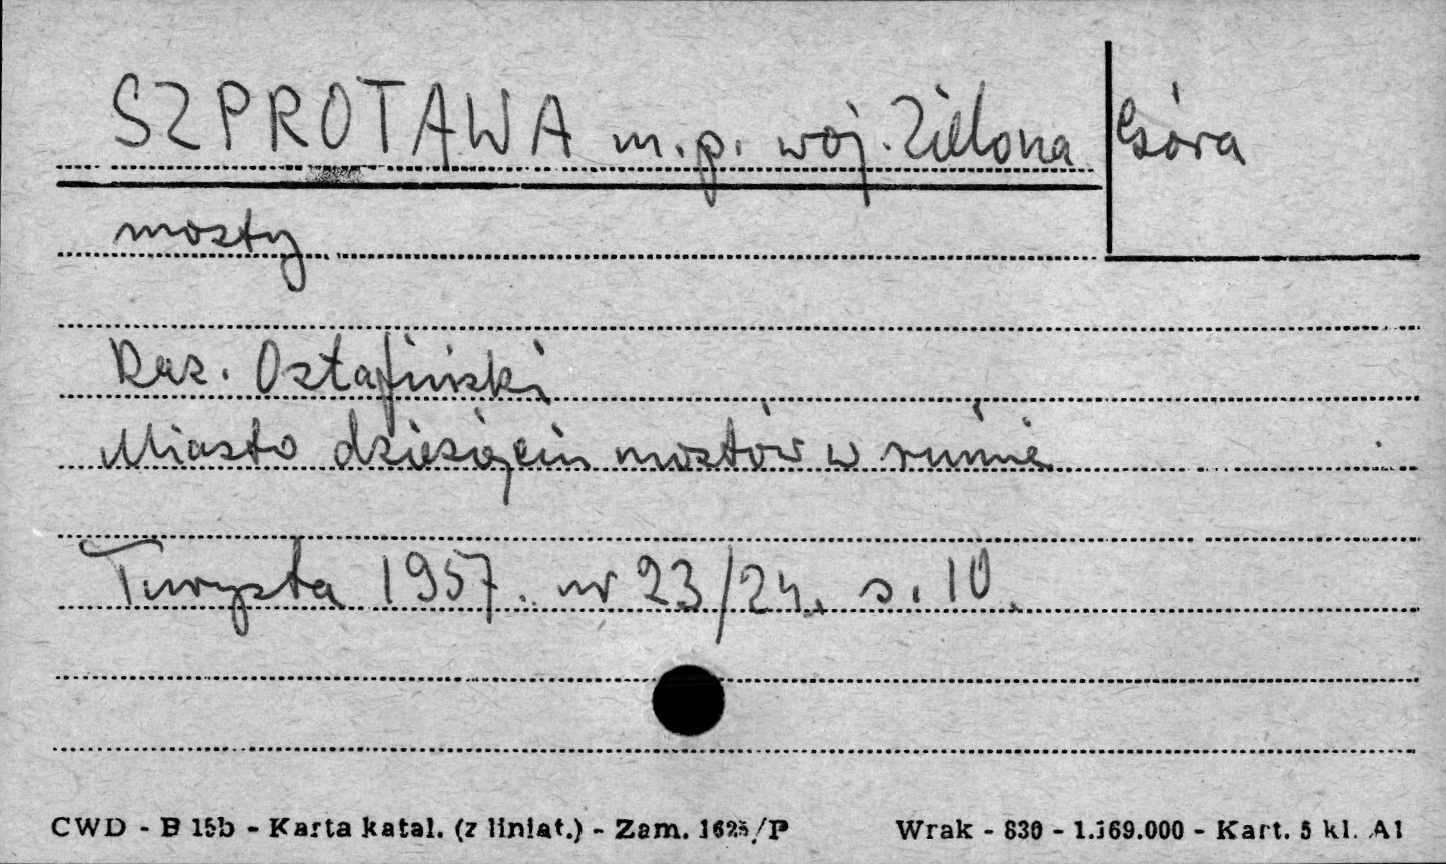 SZPROTAWA m.p. woj. Zielona Góra
mosty
Kaz. Ostafiński
Miasto dziesięciu mostów w ruinie
Turysta 1957. nr 23/24. s. 10.
CWD - B 15b - Karta katal. (z liniat.) - Zam. 1625/P Wrak - 830 - 1.169.000 - Kart. 5 kl. A1